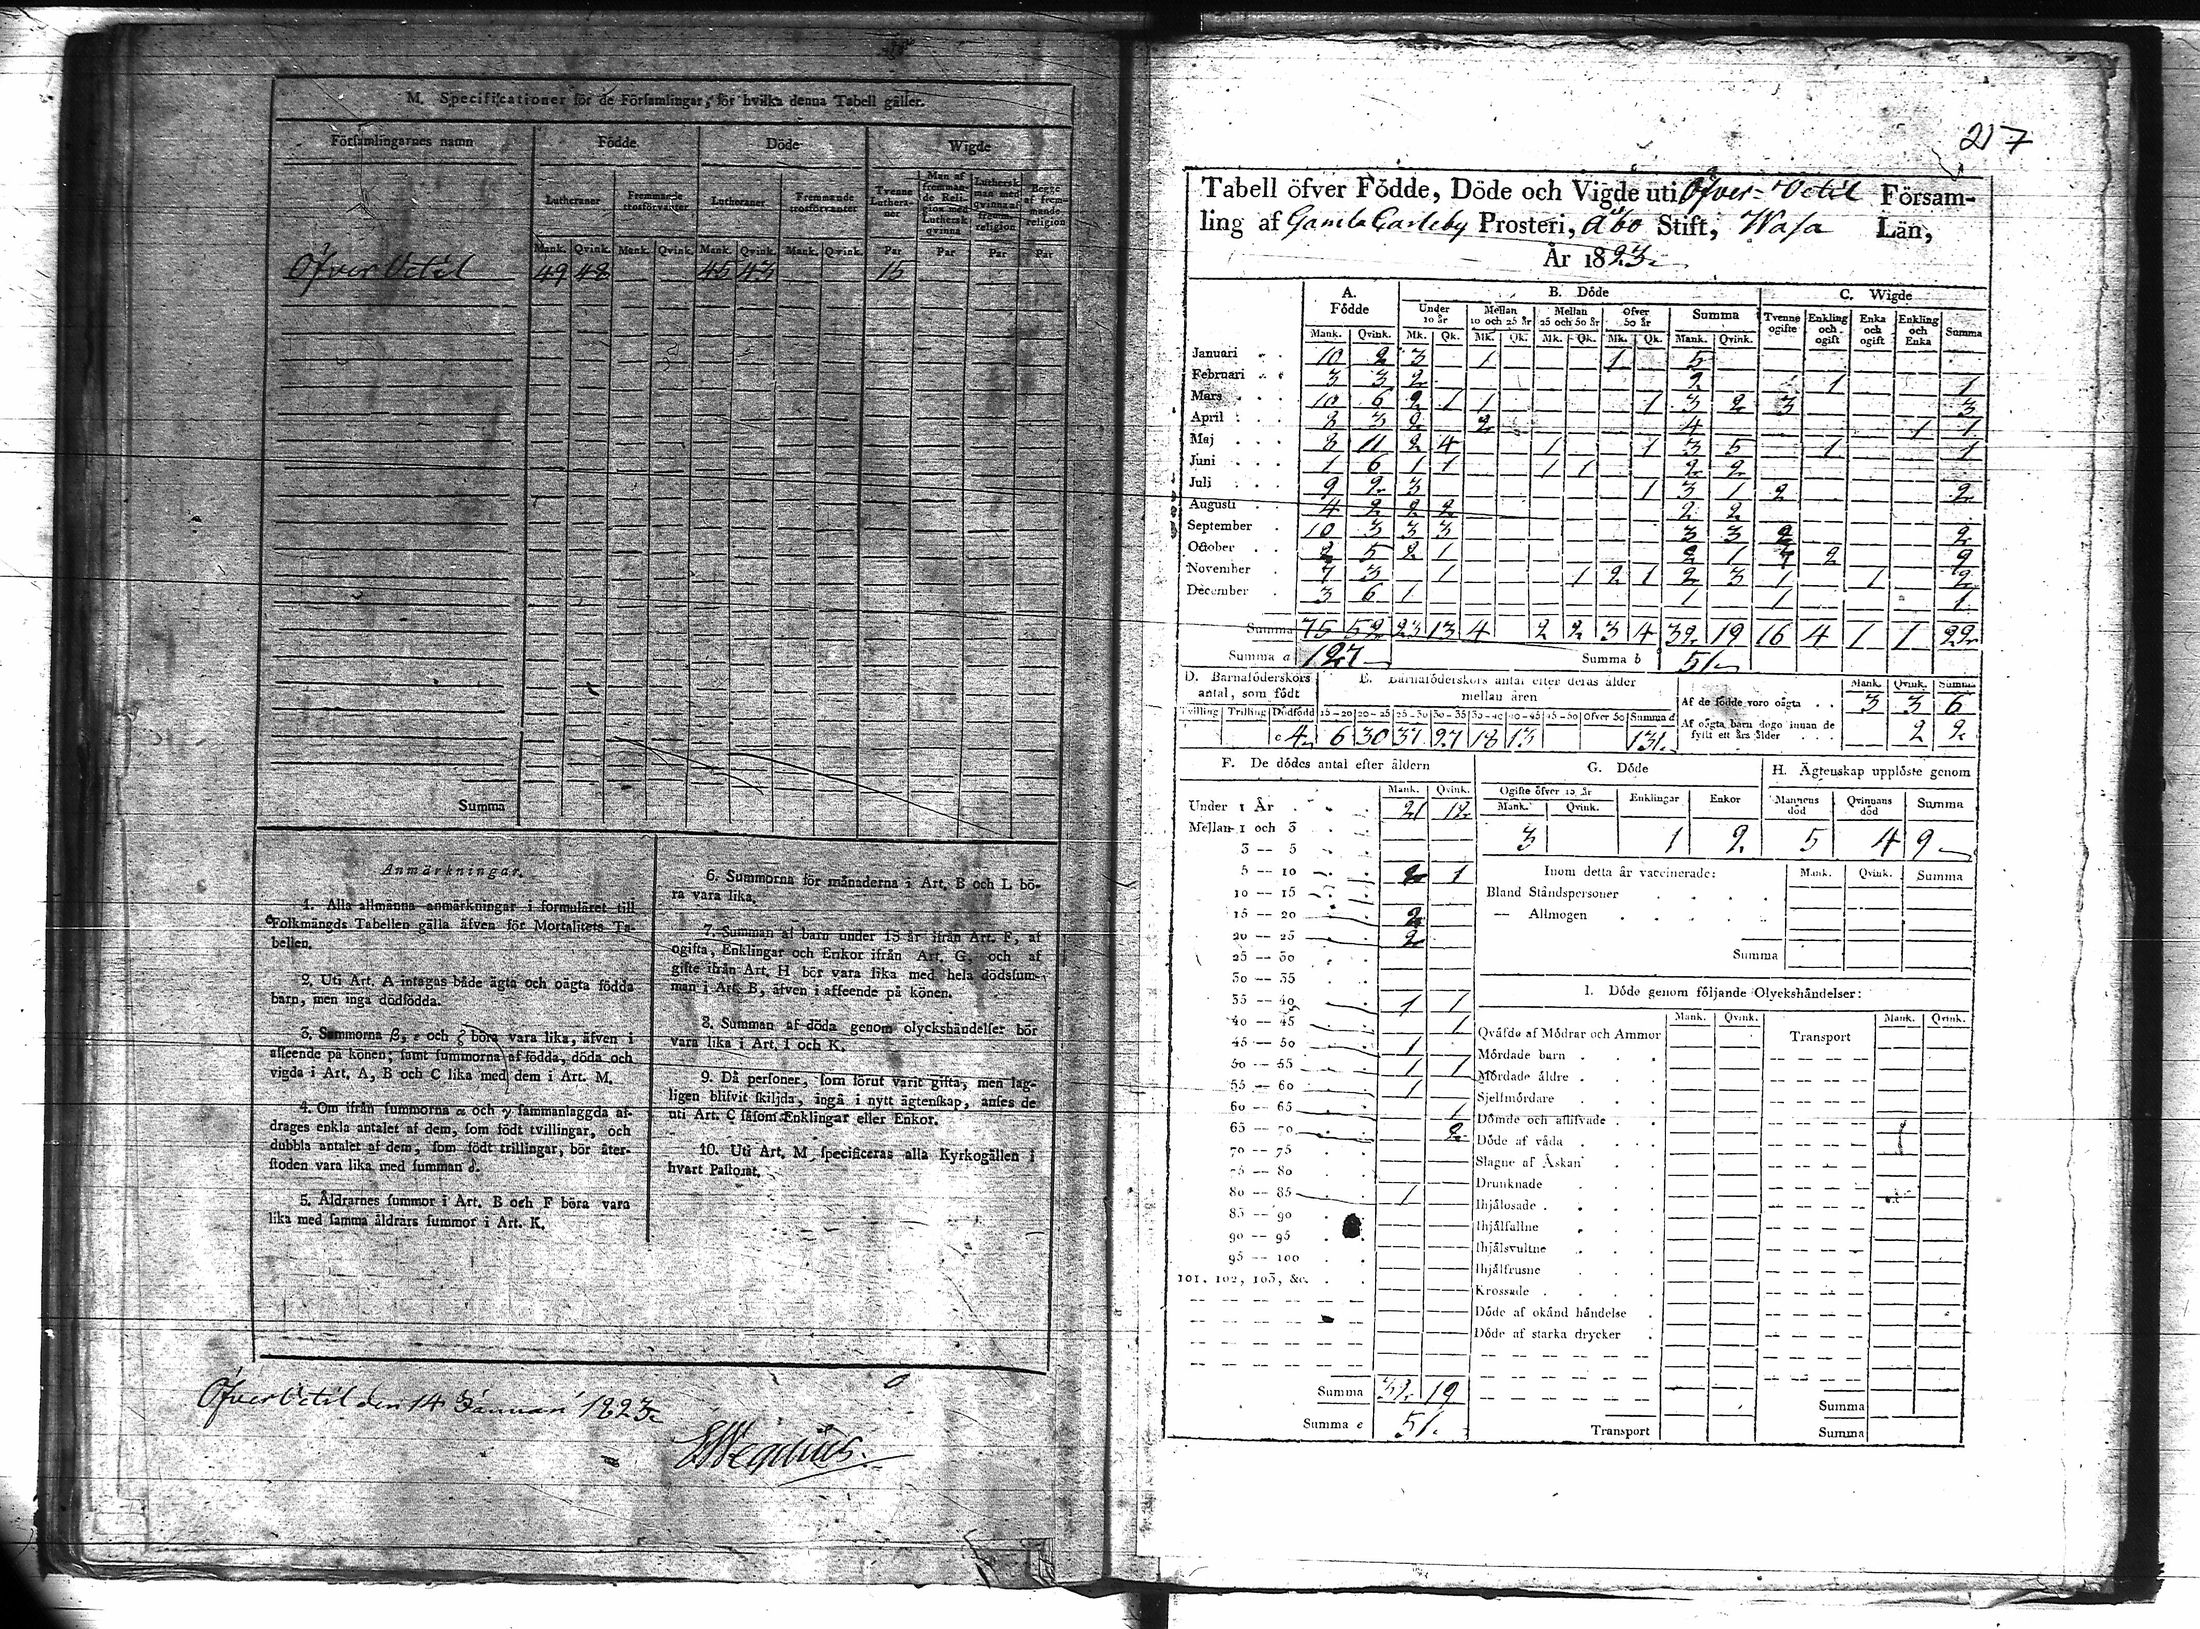 M. Specificationer för de Församlingar, för hvilka denna Tabell gäller.
Församlingarnes namn Födde Döde Wigde
Lutheraner Fremmande trosförvanter Lutheraner Fremmande trosförvanter Tvenne Lutheraner Man af fremmande Religion med Luthersk qvinna Luthersk man med qvinna af fremm. religion Begge af fremmande religion
Mank. Qvink. Mank. Qvink. Mank. Qvink. Mank. Qvink. Par Par Par Par
Öfver Vetil 49 48 45 43 15
Summa
Anmärkningar.
1. Alla allmänna anmärkningar i formuläret till
Folkmängds Tabellen gälla äfven för Mortalitets Ta-
bellen.
2. Uti Art. A intagas både ägta och oägta födda
barn, men inga dödfödda.
3. Summorna β, ε och ζ böra vara lika, äfven i
afseende på könen; samt summorna af födda, döda och
vigda i Art. A, B och C lika med dem i Art. M.
4. Om ifrån summorna α och γ sammanlaggda af-
drages enkla antalet af dem, som födt tvillingar, och
dubbla antalet af dem, som födt trillingar, bör åter-
stoden vara lika med summan δ.
5. Åldrarnes summor i Art. B och F böra vara
lika med samma åldrars summor i Art. K.
6. Summorna för månaderna i Art. B och L bö-
ra vara lika.
7. Summan af barn under 15 år ifrån Art. F, af
ogifta, Enklingar och Enkor ifrån Art. G, och af
gifte ifrån Art. H bör vara lika med hela dödssum-
man i Art. B, äfven i afseende på könen.
8. Summan af döda genom olyckshändelser bör
vara lika i Art. I och K.
9. Då personer, som förut varit gifta, men lag-
ligen blifvit skiljda, ingå i nytt ägtenskap, anses de
uti Art. C såsom Enklingar eller Enkor.
10. Uti Art. M specificeras alla Kyrkogällen i
hvart Pastorat.
Öfver Vetil den 14 Januari 1823
217
Tabell öfver Födde, Döde och Vigde uti Öfver-Vetil Försam-
ling af Gamla Carleby Prosteri, Åbo Stift, Wasa Län,
År 1823.
A. Födde B. Döde C. Wigde
Under 10 år Mellan 10 och 25 år Mellan 25 och 50 år Öfver 50 år Summa Tvenne ogifte Enkling och ogift Enka och ogift Enkling och Enka Summa
Mank. Qvink. Mk. Qk. Mk. Qk. Mk. Qk. Mk. Qk. Mank. Qvink.
Januari 10 2 3 1 1 5
Februari 3 3 2 2 1 1
Mars 10 6 2 1 1 1 3 2 3 3
April 8 3 2 2 4 1 1
Maj 8 11 2 4 1 1 3 5 1 1
Juni 1 6 1 1 1 1 2 2
Juli 9 2 3 1 3 1 2 2
Augusti 4 2 2 2 2 2
September 10 3 3 3 3 3 2 2
October 2 5 2 1 2 1 7 2 9
November 7 3 1 1 2 1 2 3 1 1 2
December 3 6 1 1 1 1
Summa 75 52 23 13 4 2 2 3 4 32 19 16 4 1 1 22
Summa a 127 Summa b 51
D. Barnaföderskors antal, som födt
Tvilling Trilling Dödfödd
c 4
E. Barnaföderskors antal efter deras ålder mellan åren
15-20 20-25 25-30 30-35 35-40 40-45 45-50 Öfver 50 Summa d
6 30 37 27 18 13 131
Mank. Qvink. Summa
Af de födde voro oägta 3 3 6
Af oägta barn dogo innan de fyllt ett års ålder 2 2
F. De dödes antal efter åldern
Mank. Qvink.
Under 1 År 21 12
Mellan 1 och 3
3 -- 5
5 -- 10 2 1
10 -- 15
15 -- 20 2
20 -- 25 2
25 -- 30
30 -- 35
35 -- 40 1 1
40 -- 45 1
45 -- 50 1
50 -- 55 1 1
55 -- 60 1
60 -- 65 1
65 -- 70 2
70 -- 75
75 -- 80
80 -- 85 1
85 -- 90
90 -- 95
95 -- 100
101, 102, 103, &c.
Summa 32 19
Summa e 51
G. Döde
Ogifte öfver 15 år Enklingar Enkor
Mank. Qvink.
3 1 2
H. Ägtenskap upplöste genom
Mannens död Qvinnans död Summa
5 4 9
Inom detta år vaccinerade: Mank. Qvink. Summa
Bland Ståndspersoner
— Allmogen
Summa
I. Döde genom följande Olyckshändelser:
Mank. Qvink. Mank. Qvink.
Qväfde af Mödrar och Ammor Transport
Mördade barn
Mördade äldre
Sjelfmördare
Dömde och aflifvade
Döde af våda
Slagne af Åskan
Drunknade
Ihjälosade
Ihjälfallne
Ihjälsvultne
Ihjälfrusne
Krossade
Döde af okänd händelse
Döde af starka drycker
Summa
Transport Summa